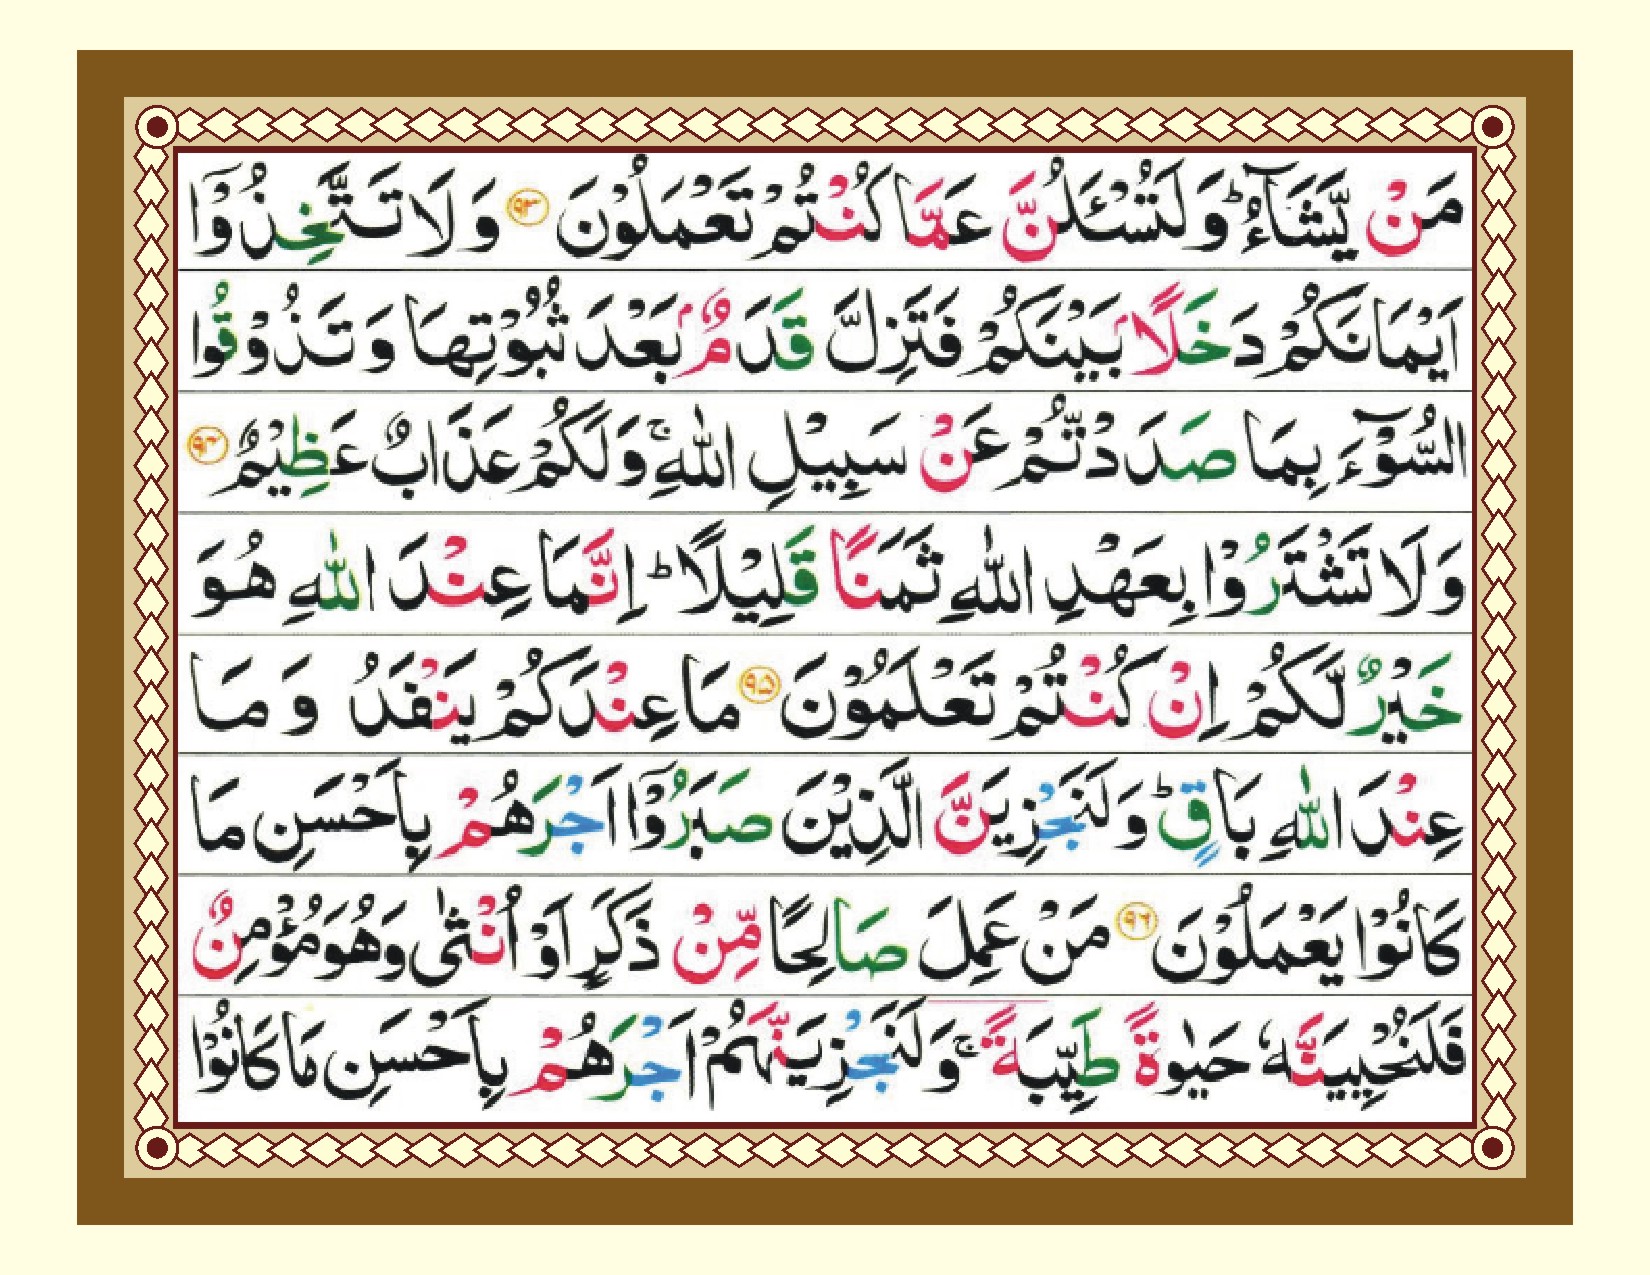 مَنۡ يَّشَآءُ ؕ وَلَتُسۡـَٔلُنَّ عَمَّا كُنۡتُمۡ تَعۡمَلُوۡنَ ۹۳ وَلَا تَتَّخِذُوۡۤا
اَيۡمَانَكُمۡ دَخَلًاۢ بَيۡنَكُمۡ فَتَزِلَّ قَدَمٌۢ بَعۡدَ ثُبُوۡتِهَا وَتَذُوۡقُوا
السُّوۡٓءَ بِمَا صَدَدْتُّمۡ عَنۡ سَبِيۡلِ اللّٰهِ ۚ وَلَكُمۡ عَذَابٌ عَظِيۡمٌ ۹۴
وَلَا تَشۡتَرُوۡا بِعَهۡدِ اللّٰهِ ثَمَنًا قَلِيۡلًا ؕ اِنَّمَا عِنۡدَ اللّٰهِ هُوَ
خَيۡرٌ لَّكُمۡ اِنۡ كُنۡتُمۡ تَعۡلَمُوۡنَ ۹۵ مَا عِنۡدَكُمۡ يَنۡفَدُ وَمَا
عِنۡدَ اللّٰهِ بَاقٍ ؕ وَلَنَجۡزِيَنَّ الَّذِيۡنَ صَبَرُوۡۤا اَجۡرَهُمۡ بِاَحۡسَنِ مَا
كَانُوۡا يَعۡمَلُوۡنَ ۹۶ مَنۡ عَمِلَ صَالِحًا مِّنۡ ذَكَرٍ اَوۡ اُنۡثٰى وَهُوَ مُؤۡمِنٌ
فَلَنُحۡيِيَنَّهٗ حَيٰوةً طَيِّبَةً ۚ وَلَنَجۡزِيَنَّهُمۡ اَجۡرَهُمۡ بِاَحۡسَنِ مَا كَانُوۡا